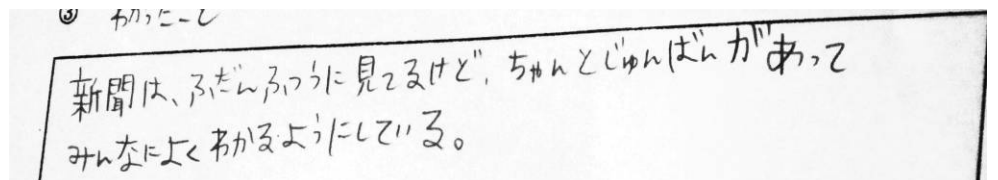 ③ わかったこと
新聞は、ふだんふつうに見てるけど、ちゃんとじゅんばんがあって
みんなによくわかるようにしている。